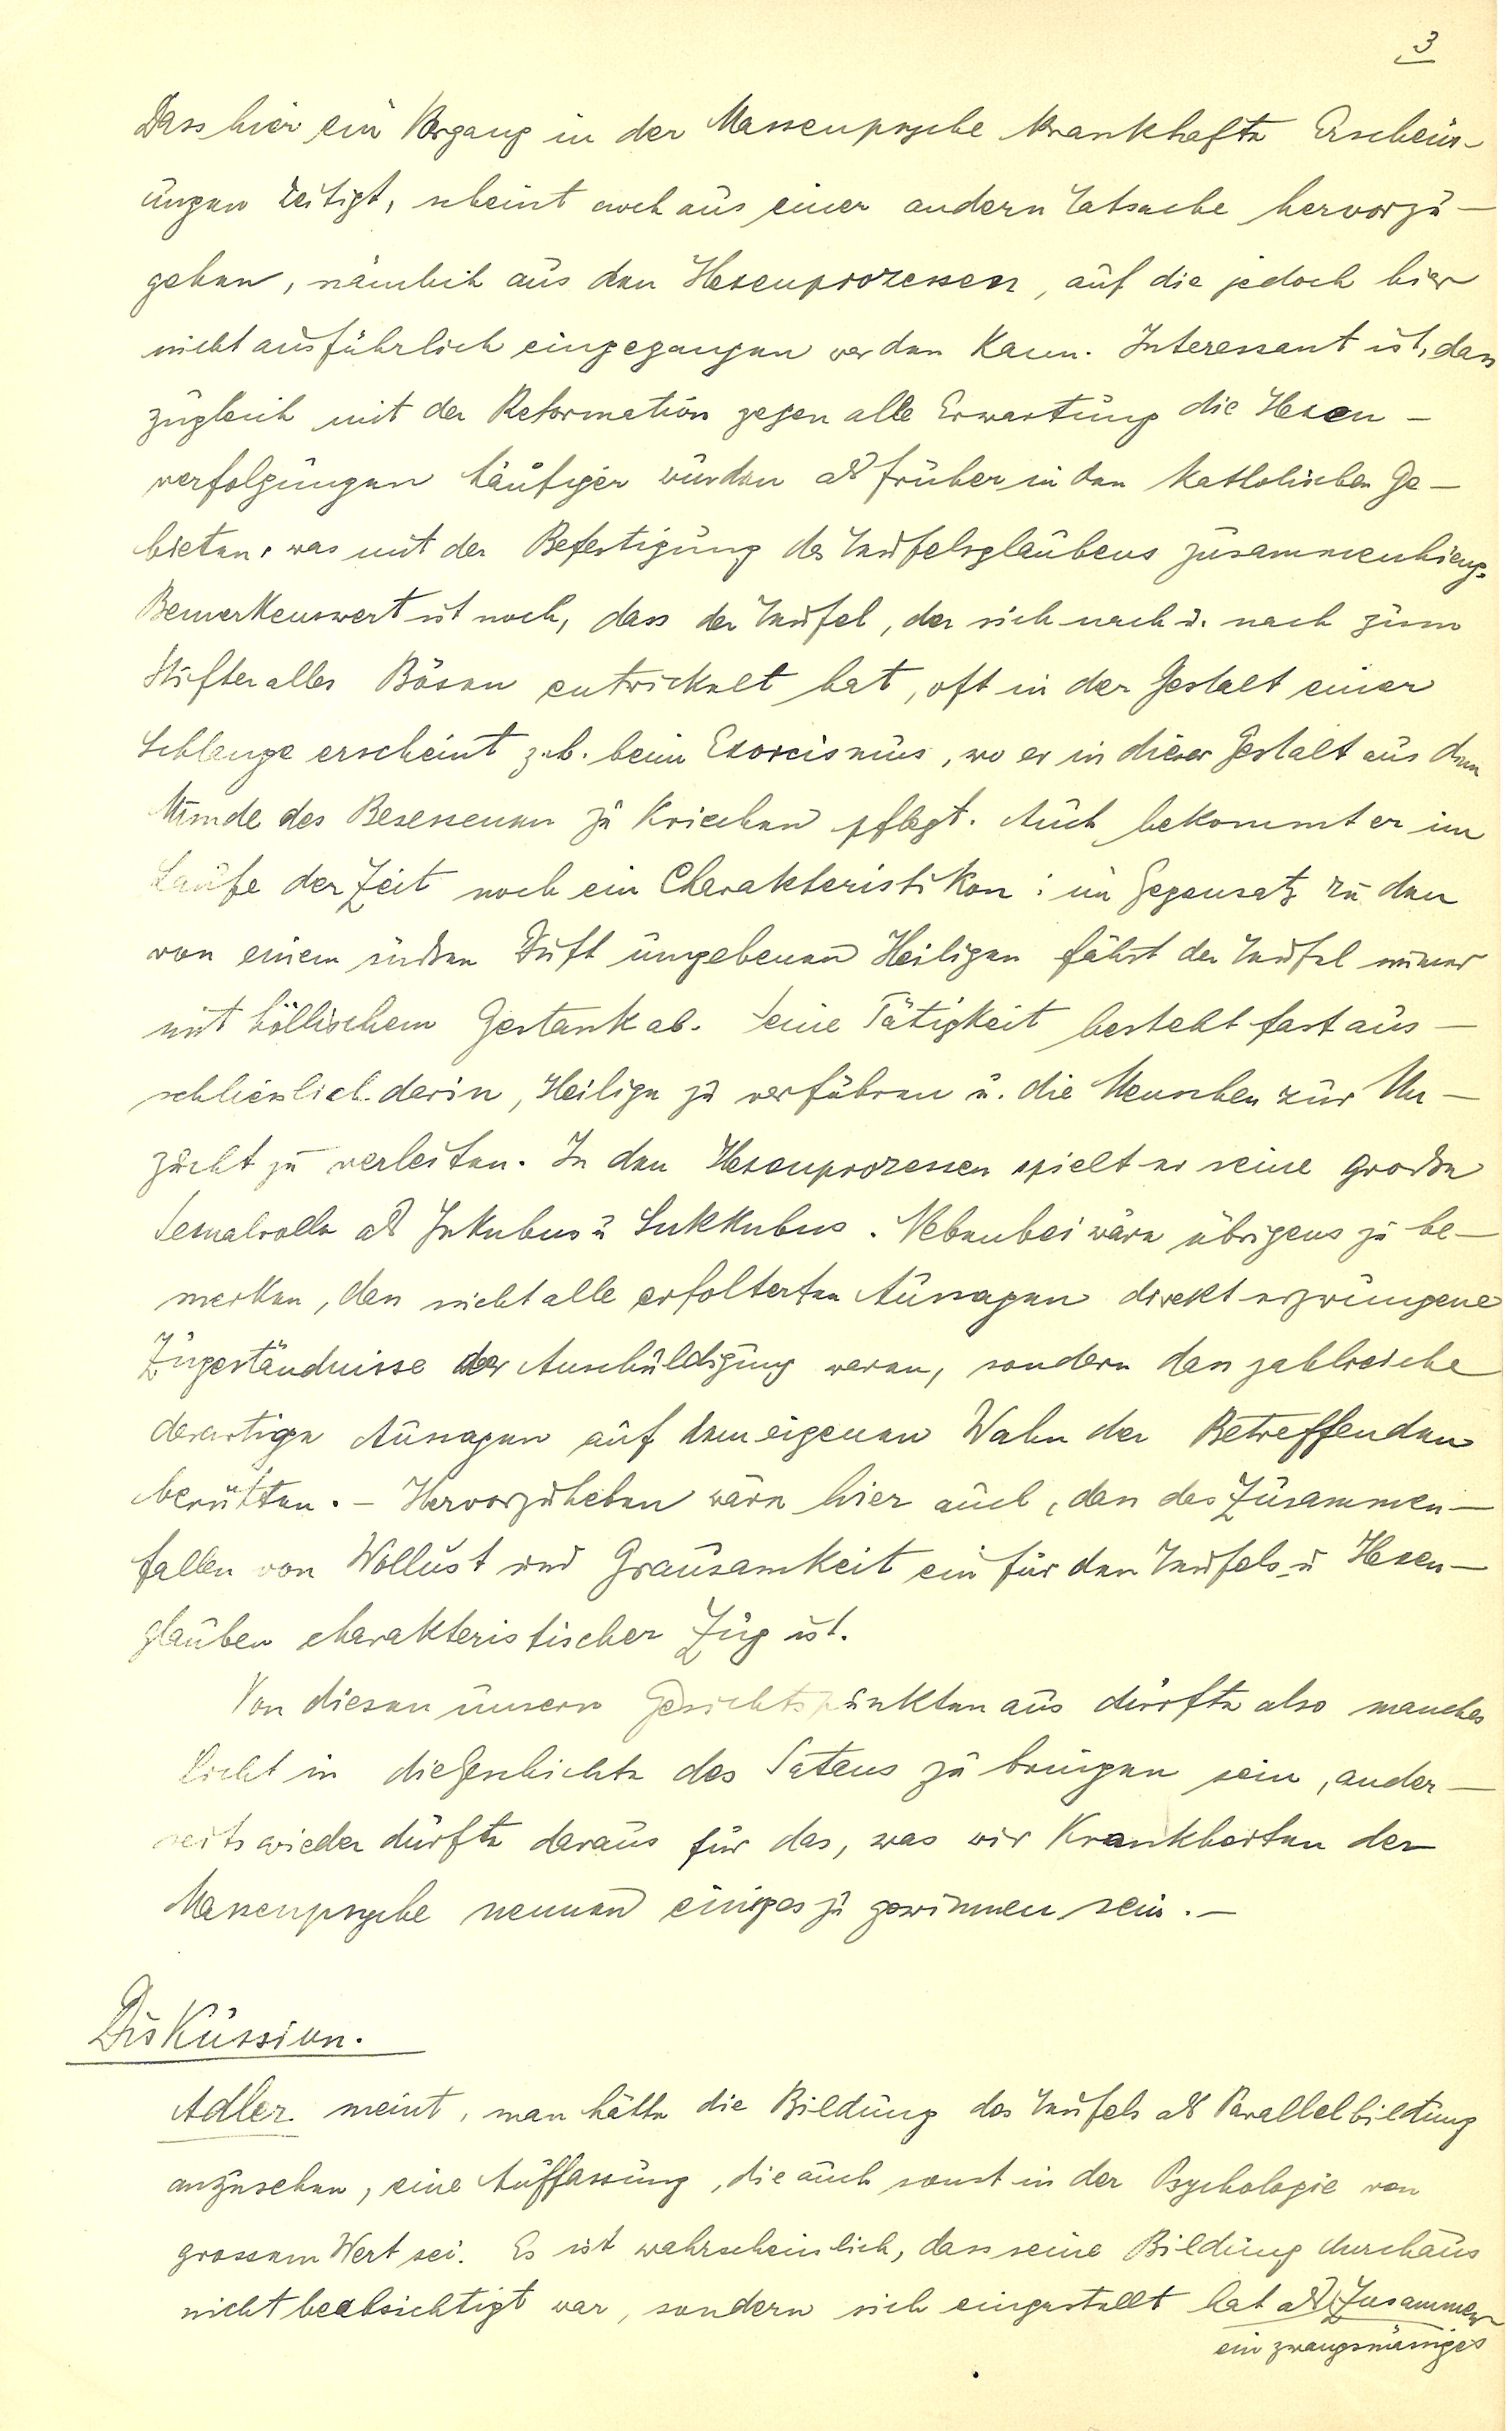 3
Dass hier ein Vorgang in der Massenpsyche krankhafte Erschein-
ungen zeitigt, scheint auch aus einer andern Tatsache hervorzu-
gehen, nämlich aus den Hexenprozessen, auf die jedoch hier
nicht ausführlich eingegangen werden kann. Interessant ist, dass
zugleich mit der Reformation gegen alle Erwartung die Hexen-
verfolgungen häufiger wurden als früher in den katholischen Ge-
bieten, was mit der Befestigung des Teufelsglaubens zusammenhieng.
Bemerkenswert ist noch, dass der Teufel, der sich nach u. nach zum
Stifter alles Bösen entwickelt hat, oft in der Gestalt einer
Schlange erscheint z.b. beim Exorcismus, wo er in dieser Gestalt aus dem
Munde des Besessenen zu kriechen pflegt. Auch bekommt er im
Laufe der Zeit noch ein Charakteristikon: im Gegensatz zu den
von einem süßen Duft umgebenen Heiligen fährt der Teufel immer
mit höllischem Gestank ab. Seine Tätigkeit besteht fast aus-
schliesslich darin, Heilige zu verführen u. die Menschen zur Un-
zucht zu verleiten. In den Hexenprozessen spielt er seine große
Sexualrolle als Inkubus u Sukkubus. Nebenbei wäre übrigens zu be-
merken, dass nicht alle erfolterten Aussagen direkt erzwungene
Zugeständnisse der Anschuldigung waren, sondern dass zahlreiche
derartige Aussagen auf dem eigenen Wahn der Betreffenden
beruhten. - Hervorzuheben wäre hier auch, dass das Zusammen-
fallen von Wollust und Grausamkeit ein für den Teufels- u Hexen-
glauben charakteristischer Zug ist.
Von diesen unsern Gesichtspunkten aus dürfte also manches
Licht in die Geschichte des Satans zu bringen sein, ander-
seits wieder dürfte daraus für das, was wir Krankheiten der
Massenpsyche nennen einiges zu gewinnen sein. -
Diskussion.
Adler meint, man hätte die Bildung des Teufels als Parallelbildung
anzusehen, eine Auffassung, die auch sonst in der Psychologie von
grossem Wert sei. Es ist wahrscheinlich, dass seine Bildung durchaus
nicht beabsichtigt war, sondern sich eingestellt hat als Zusammen
ein zwangsmässiges